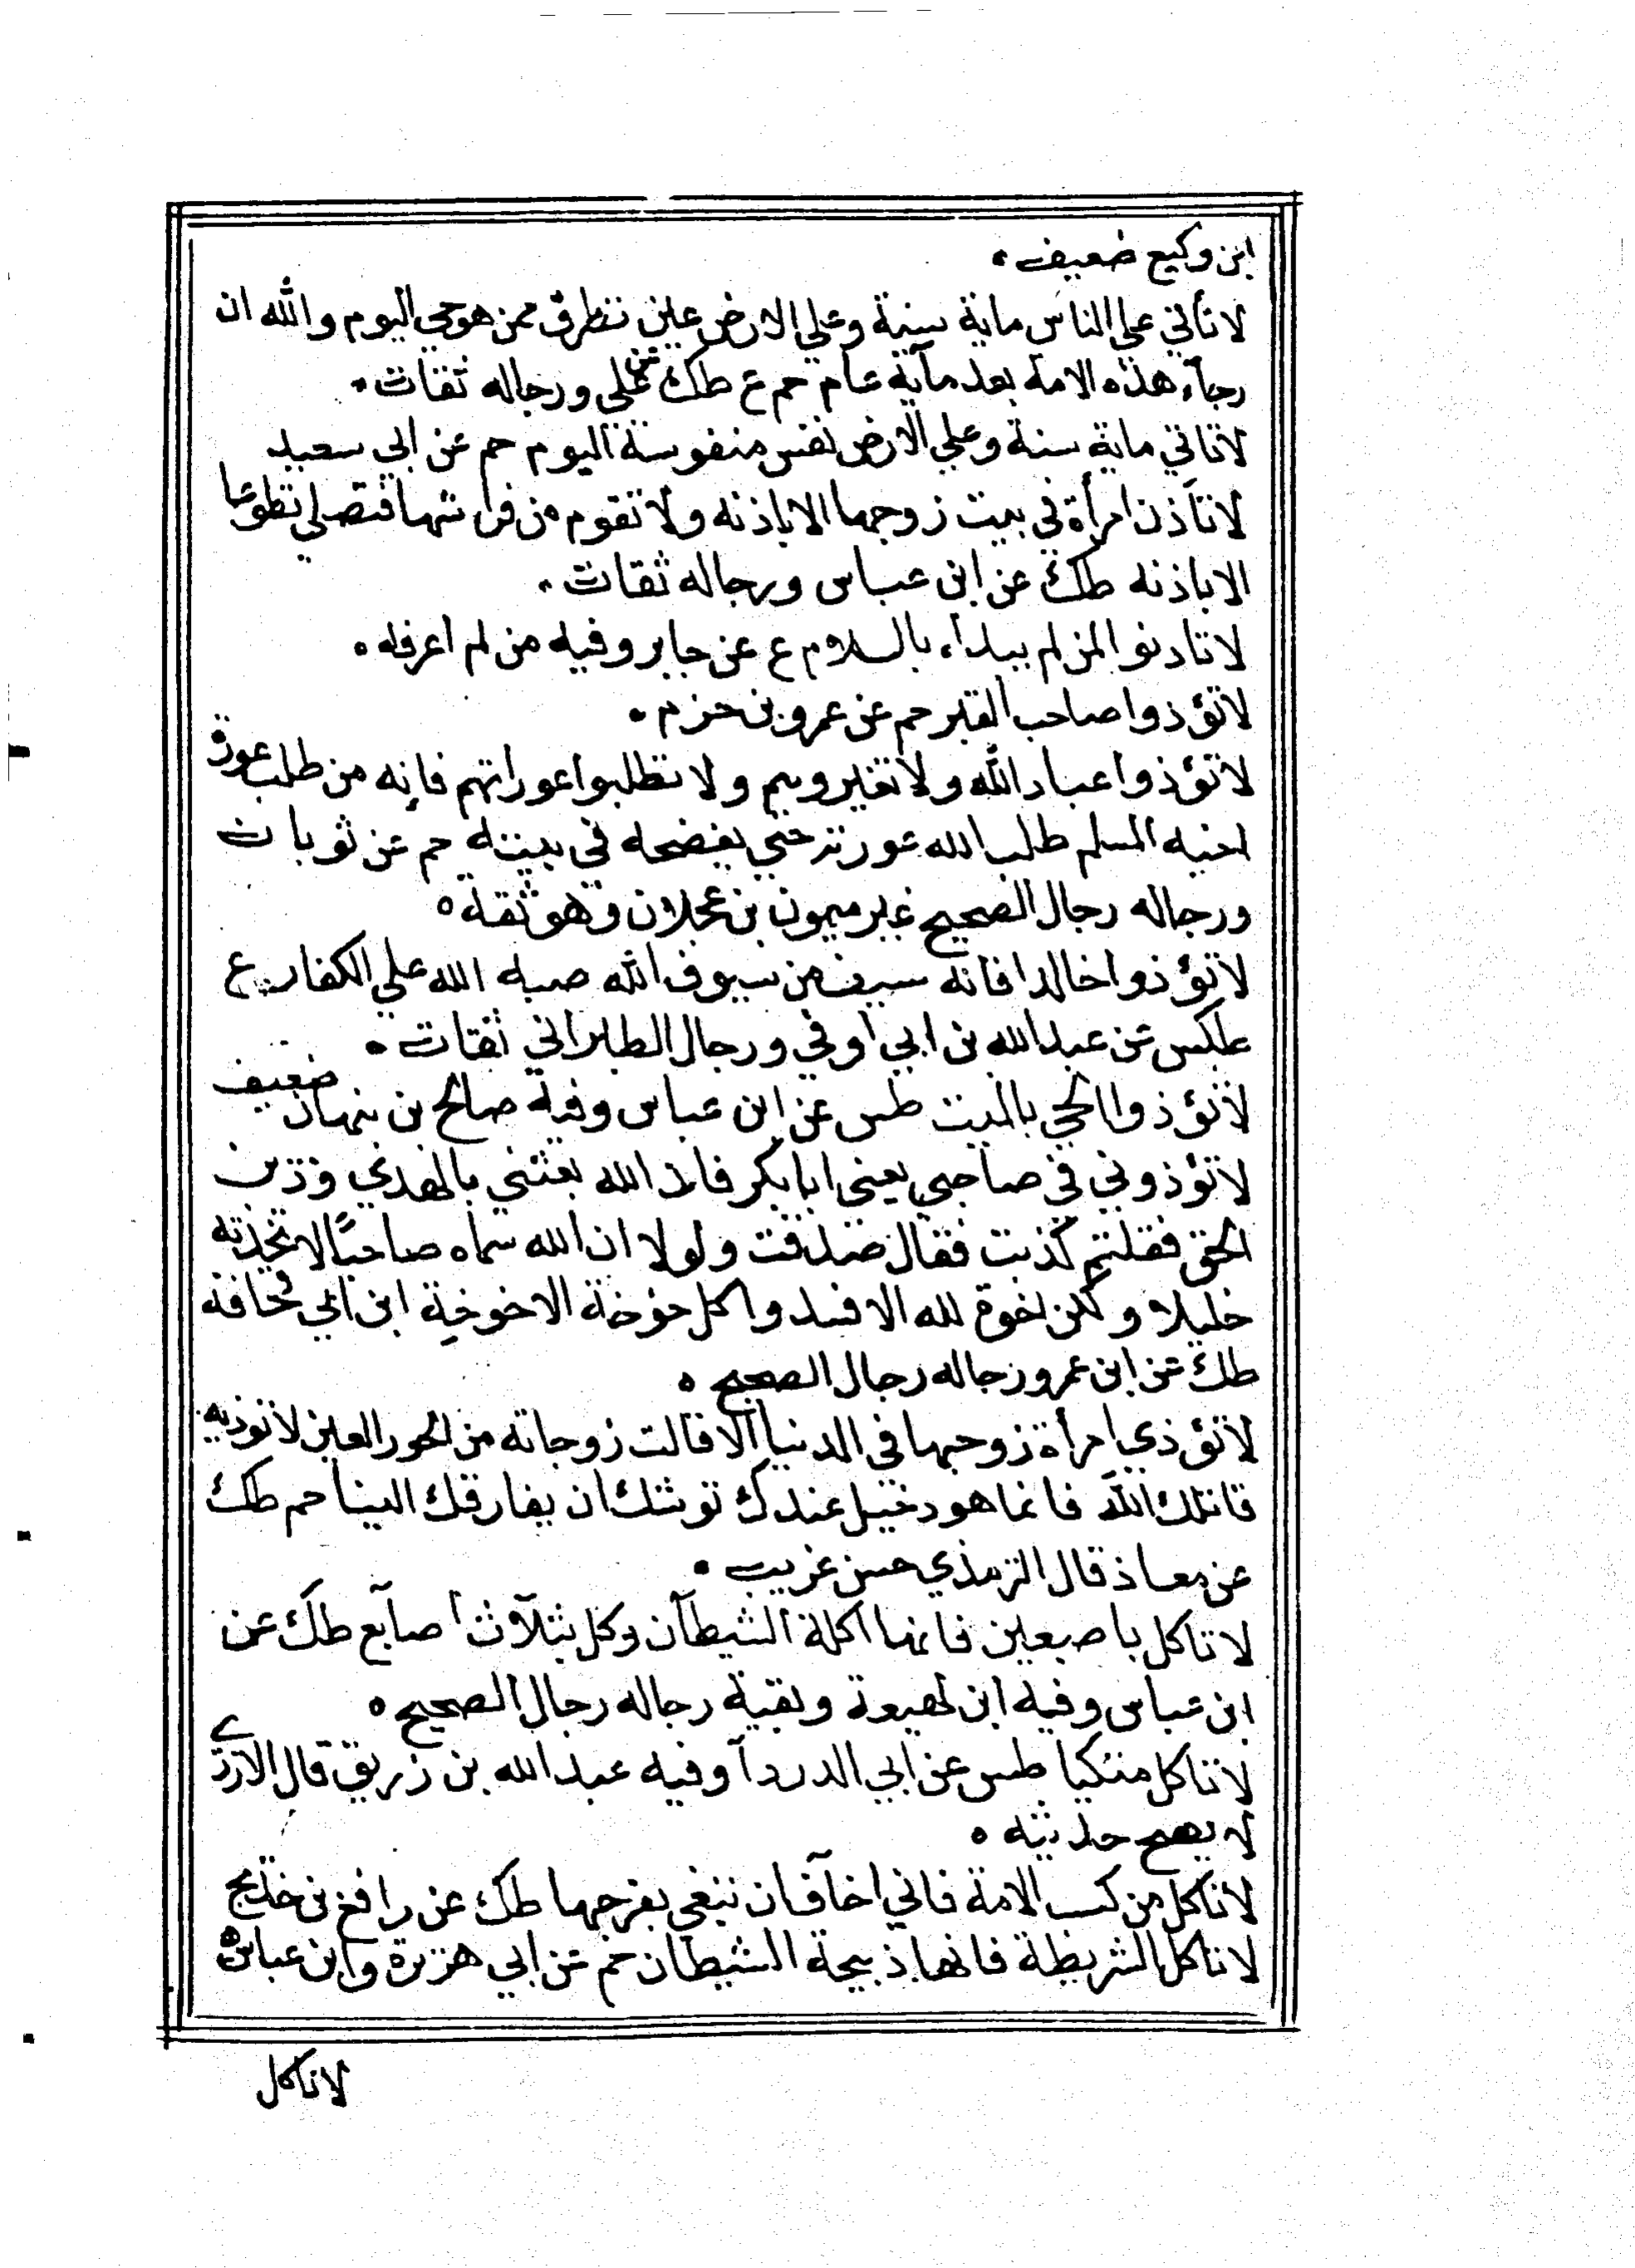 ابن وكيع ضعيف
لا تأتي علي الناس ماية سنة وعلي الارض عين تطرق ممن هو حي اليوم والله ان
رجآء هذه الامة بعد مآية عام حم ع طك عن علي ورجاله ثقات
لا تاتي ماية سنة وعلي الارض نفس منفوسة اليوم حم عن ابي سعيد
لا تأذن امرأة في بيت زوجها الا باذنه ولا تقوم من فراشها فتصلي تطوعا
الا باذنه طك عن ابن عباس ورجاله ثقات
لا تادنوا لمن لم يبداء بالسلام ع عن جابر وفيه من لم اعرفه
لا تؤذوا صاحب القبر حم عن عمرو بن حزم
لا تؤذوا عباد الله ولا تغيروهم ولا تطلبوا عوراتهم فإنه من طلب عورة
اخيه المسلم طلب الله عورته حتي يفضحه في بيته حم عن ثوبان
ورجاله رجال الصحيح غير ميمون بن عجلان وهو ثقة
لا تؤذوا خالدا فانه سيف من سيوف الله صبه الله علي الكفار ع
طكس عن عبد الله بن ابي اوفي ورجال الطبراني ثقات
لا تؤذوا الحي بالميت طس عن ابن عباس وفيه صالح بن نبهان ضعيف
لا تؤذوني في صاحبي يعني ابا بكر فان الله بعثني بالهدي ودين
الحق فقلتم كذبت فقال صدقت ولولا ان الله سماه صاحبًا لاتخذته
خليلا ولكن اخوة لله الا فسدوا كل خوخة الا خوخة ابن ابي قحافة
طك عن ابن عمر ورجاله رجال الصحيح
لا تؤذي امرأة زوجها في الدنيا الا قالت زوجاته من الحور العين لا توذيه
قاتلك الله فانما هو دخيل عندك توشك ان يفارقك الينا حم طك
عن معاذ قال الترمذي حسن غريب
لا تاكل باصبعين فانها اكلة الشيطآن وكل بثلآث اصآبع طك عن
ابن عباس وفيه ابن لهيعة وبقية رجاله رجال الصحيح
لا تاكل متكيا طس عن ابي الدردآ وفيه عبد الله بن زريق قال الازدي
لا يصح حديثه
لا تاكل من كسب الامة فاني اخآف ان تبغي بفرجها طك عن رافع بن خديج
لا تاكل الشريطة فانها ذبيحة الشيطان حم عن ابي هريرة وابن عباس
لا تاكل